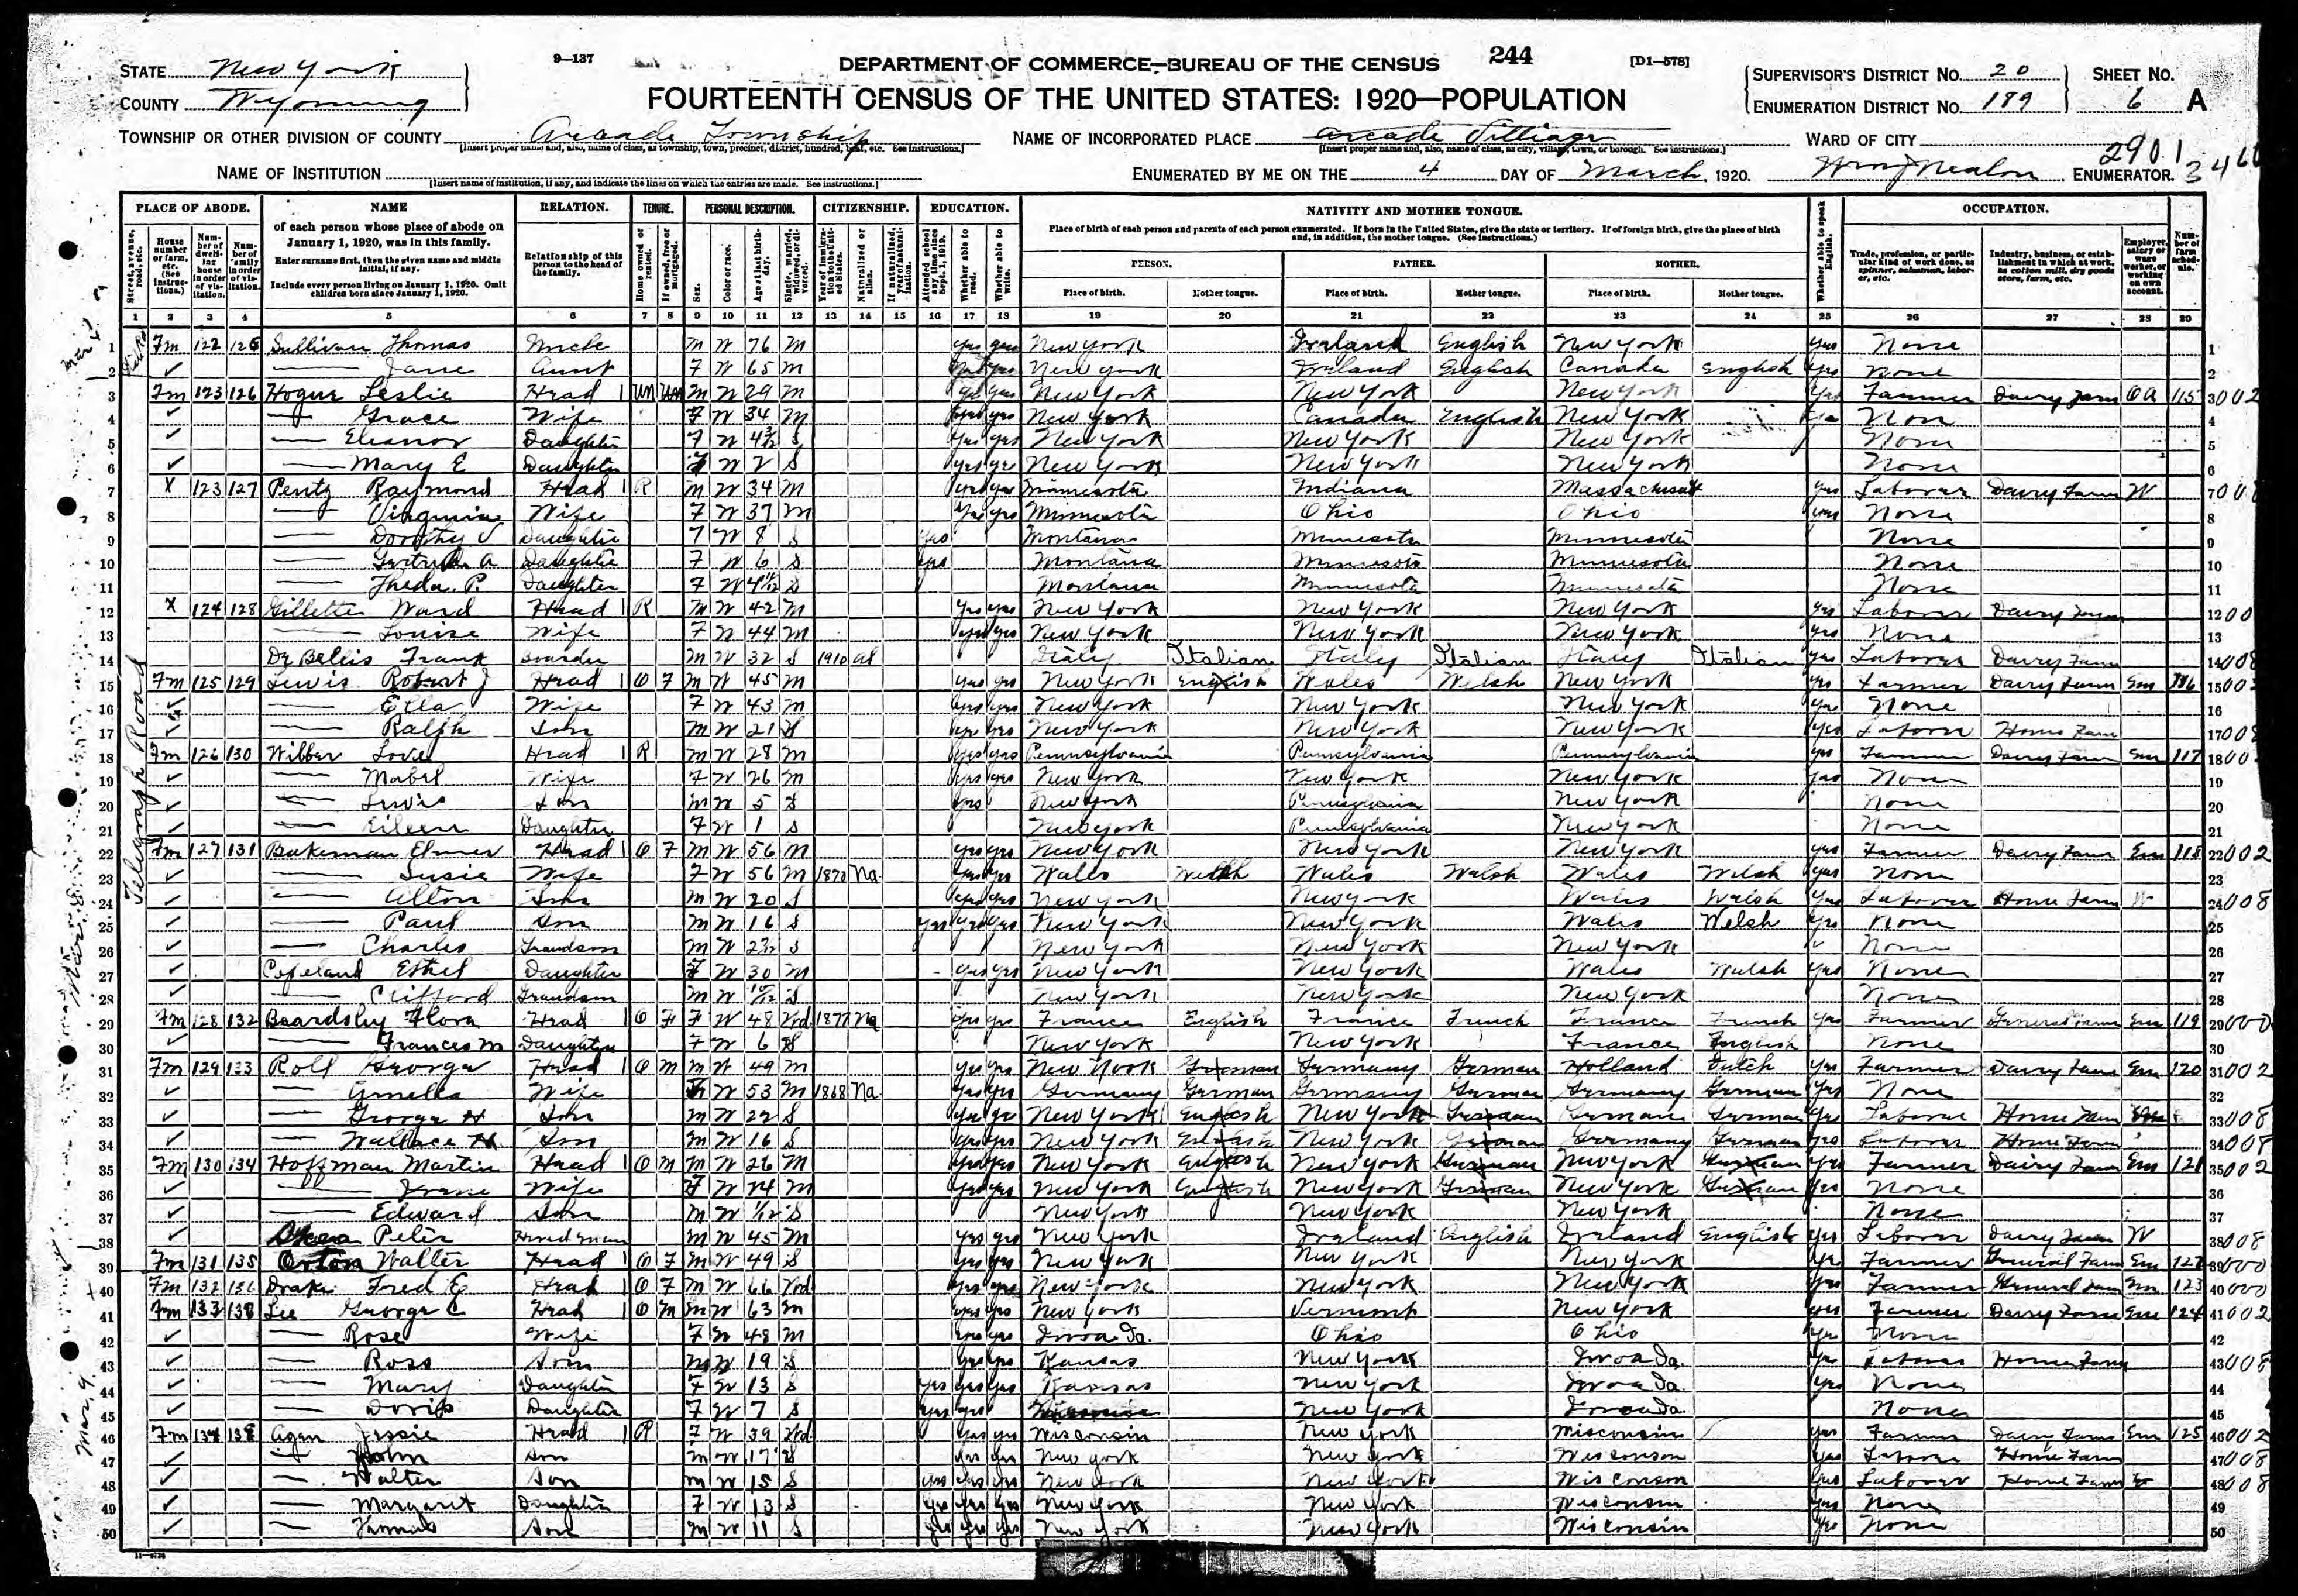 STATE New York
COUNTY Wyoming
9—137
DEPARTMENT OF COMMERCE—BUREAU OF THE CENSUS
244
[D1—578]
FOURTEENTH CENSUS OF THE UNITED STATES: 1920—POPULATION
SUPERVISOR'S DISTRICT NO. 20
ENUMERATION DISTRICT NO. 189
SHEET NO. 6 A
TOWNSHIP OR OTHER DIVISION OF COUNTY Arcade Township
[Insert proper name and, also, name of class, as township, town, precinct, district, hundred, beat, etc. See instructions.]
NAME OF INCORPORATED PLACE Arcade Village
[Insert proper name and, also, name of class, as city, village, town, or borough. See instructions.]
WARD OF CITY
2901
NAME OF INSTITUTION
[Insert name of institution, if any, and indicate the lines on which the entries are made. See instructions.]
ENUMERATED BY ME ON THE 4 DAY OF March, 1920. Wm J Nealon ENUMERATOR.
PLACE OF ABODE. NAME RELATION. TENURE. PERSONAL DESCRIPTION. CITIZENSHIP. EDUCATION. NATIVITY AND MOTHER TONGUE. OCCUPATION.
of each person whose place of abode on January 1, 1920, was in this family.
Enter surname first, then the given name and middle initial, if any.
Include every person living on January 1, 1920. Omit children born since January 1, 1920.
Relationship of this person to the head of the family.
Place of birth of each person and parents of each person enumerated. If born in the United States, give the state or territory. If of foreign birth, give the place of birth and, in addition, the mother tongue. (See instructions.)
PERSON. FATHER. MOTHER.
Place of birth. Mother tongue. Place of birth. Mother tongue. Place of birth. Mother tongue.
1 2 3 4 5 6 7 8 9 10 11 12 13 14 15 16 17 18 19 20 21 22 23 24 25 26 27 28 29
Telegraph Road
1 Fm 122 125 Sullivan Thomas Uncle M W 76 M yes yes New York Ireland English New York yes None
2 Jane Aunt F W 65 M yes New York Ireland English Canada English yes None
3 Fm 123 126 Hogue Leslie Head Un Un M W 29 M yes yes New York New York New York yes Farmer Dairy Farm OA 115
4 Grace Wife F W 34 M yes yes New York Canada English New York None
5 Eleanor Daughter F W S yes yes New York New York New York None
6 Mary E Daughter F W 2 S yes yes New York New York New York None
7 X 123 127 Pentz Raymond Head R M W 34 M yes yes Minnesota Indiana Massachusett yes Laborer Dairy Farm W
8 Virginia Wife F W 37 M yes yes Minnesota Ohio Ohio yes None
9 Dorothy V Daughter F W 8 S yes Montana Minnesota Minnesota None
10 Gertrude A Daughter F W 6 S yes Montana Minnesota Minnesota None
11 Theda P. Daughter F W 4 11/12 S Montana Minnesota Minnesota None
12 X 124 128 Gillette Ward Head R M W 42 M yes yes New York New York New York yes Laborer Dairy Farm
13 Louise Wife F W 44 M yes yes New York New York New York yes None
14 Frank Boarder M W 32 S 1910 al Italy Italian Italy Italian Italy Italian yes Laborer Dairy Farm
15 Fm 125 129 Lewis Robert J Head O F M W 45 M yes yes New York English Wales Welsh New York yes Farmer Dairy Farm Em 116
16 Ella Wife F W 43 M yes yes New York New York New York yes None
17 Ralph Son M W 21 S yes yes New York New York New York yes Laborer Home Farm
18 Fm 126 130 Wilber Head R M W 28 M yes yes Pennsylvania Pennsylvania Pennsylvania yes Farmer Dairy Farm Em 117
19 Mabel Wife F W 26 M yes yes New York New York New York yes None
20 Lewis Son M W 5 S yes New York Pennsylvania New York None
21 Eileen Daughter F W 1 S New York Pennsylvania New York None
22 Fm 127 131 Bakeman Elmer Head O F M W 56 M yes yes New York New York New York yes Farmer Dairy Farm Em 118
23 Susie Wife F W 56 M 1870 Na yes yes Wales Welsh Wales Welsh Wales Welsh yes None
24 Alton Son M W 20 S yes yes New York New York Wales Welsh yes Laborer Home Farm W
25 Paul Son M W 16 S yes yes yes New York New York Wales Welsh yes None
26 Charles Grandson M W S New York New York New York None
27 Copeland Ethel Daughter F W 30 M yes yes New York New York Wales Welsh yes None
28 Clifford Grandson M W 10/12 S New York New York New York None
29 Fm 128 132 Beardsley Flora Head O F F W 48 Wd 1877 Na yes yes France English France French France French yes Farmer General Farm Em 119
30 Frances M Daughter F W 6 S New York New York France English None
31 Fm 129 133 Roll George Head O M M W 49 M yes yes New York German Germany German Holland Dutch yes Farmer Dairy Farm Em 120
32 Amelia Wife F W 53 M 1868 Na yes yes Germany German Germany German Germany German yes None
33 George H Son M W 22 S yes yes New York English New York German German German yes Laborer Home Farm
34 Wallace H Son M W 16 S yes yes New York English New York German Germany German yes Laborer Home Farm
35 Fm 130 134 Hoffman Martin Head O M M W 26 M yes yes New York English New York German New York German yes Farmer Dairy Farm Em 121
36 Irene Wife F W 24 M yes yes New York English New York German New York German yes None
37 Edward Son M W 1/12 S New York New York New York None
38 Peter Hired man M W 45 M yes yes New York Ireland English Ireland English yes Laborer Dairy Farm W
39 Fm 131 135 Orton Walter Head O F M W 49 S yes yes New York New York New York yes Farmer General Farm Em 122
40 Fm 132 136 Drake Fred E Head O F M W 66 Wd yes yes New York New York New York yes Farmer General Farm Em 123
41 Fm 133 138 Lee George C Head O M M W 63 M yes yes New York Vermont New York yes Farmer Dairy Farm Em 124
42 Rose Wife F W 48 M yes yes Iowa Ia. Ohio Ohio yes None
43 Ross Son M W 19 S yes yes Kansas New York Iowa Ia. yes Laborer Home Farm
44 Mary Daughter F W 13 S yes yes yes Kansas New York Iowa Ia. yes None
45 Doris Daughter F W 7 S yes yes New York Iowa Ia. None
46 Fm 134 138 Agen Jessie Head R F W 39 Wd yes yes Wisconsin New York Wisconsin yes Farmer Dairy Farm Em 125
47 John Son M W 17 S yes yes New York New York Wisconson yes Laborer Home Farm
48 Walter Son M W 15 S yes yes yes New York New York Wisconson yes Laborer Home Farm
49 Margaret Daughter F W 13 S yes yes yes New York New York Wisconsin yes None
50 Thomas Son M W 11 S yes yes yes New York New York Wisconsin yes None